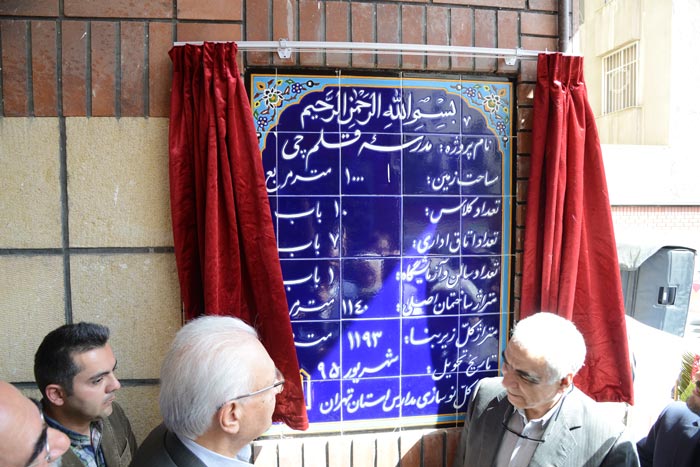 بسم الله الرحمن الرحیم
نام پروژه: مدرسهٔ قلم چی
مساحت زمین: ۱۰۰۰ مترمربع
تعداد کلاس: ۱۰ باب
تعداد اتاق اداری: ۷ باب
تعداد سالن و آزمایشگاه: ۱ باب
متراژ ساختمان اصلی: ۱۱۴۰ متر
متراژ کل زیربنا: ۱۱۹۳ مت
تاریخ تحویل: شهریور ۹۵
کل نوسازی مدارس استان تهران